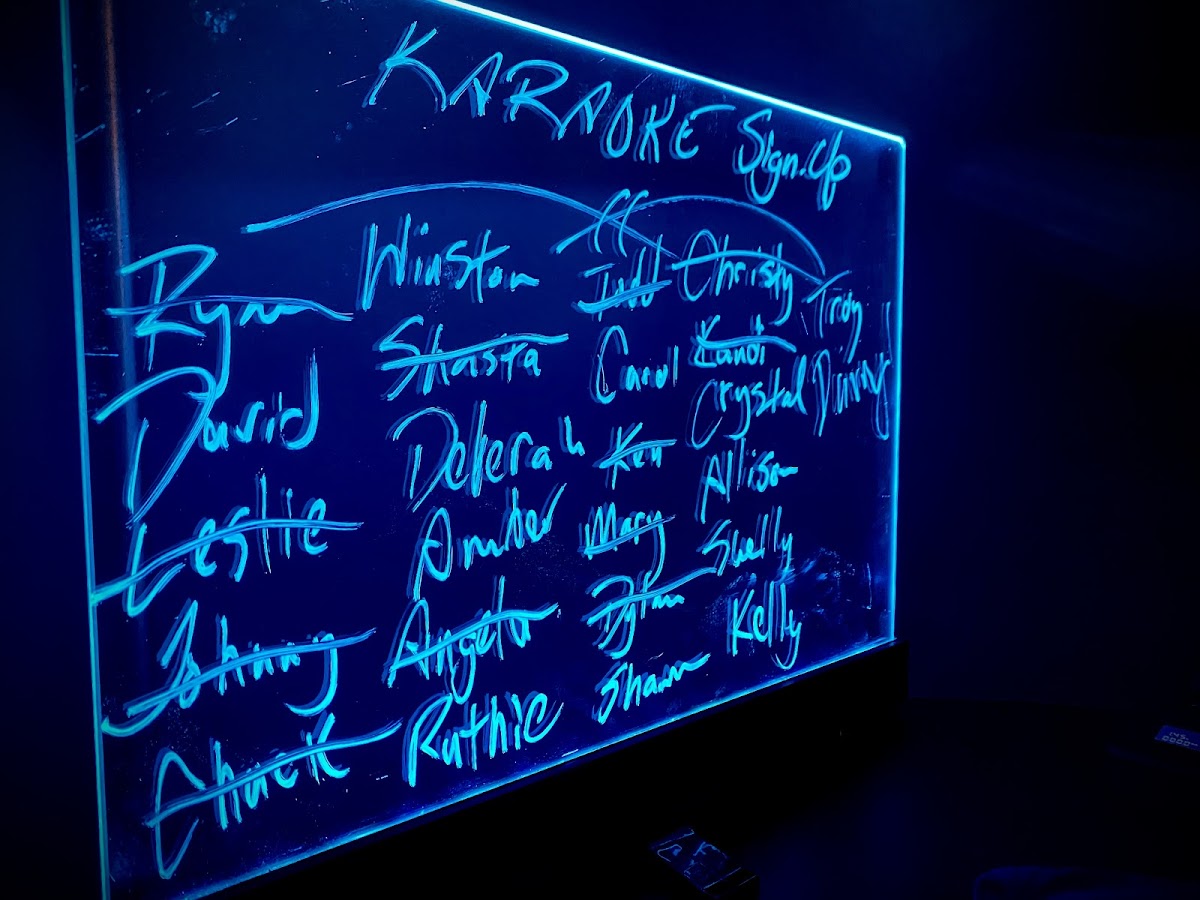 KARAOKE Sign-Up
Ryan
David
Leslie
Johnny
Chuck
Winston
Shasta
Deberah
Amber
Angela
Ruthie
Carol
Ken
Mary
Dylan
Shawn
Christy
Kandi
Crystal
Allison
Shelly
Kelly